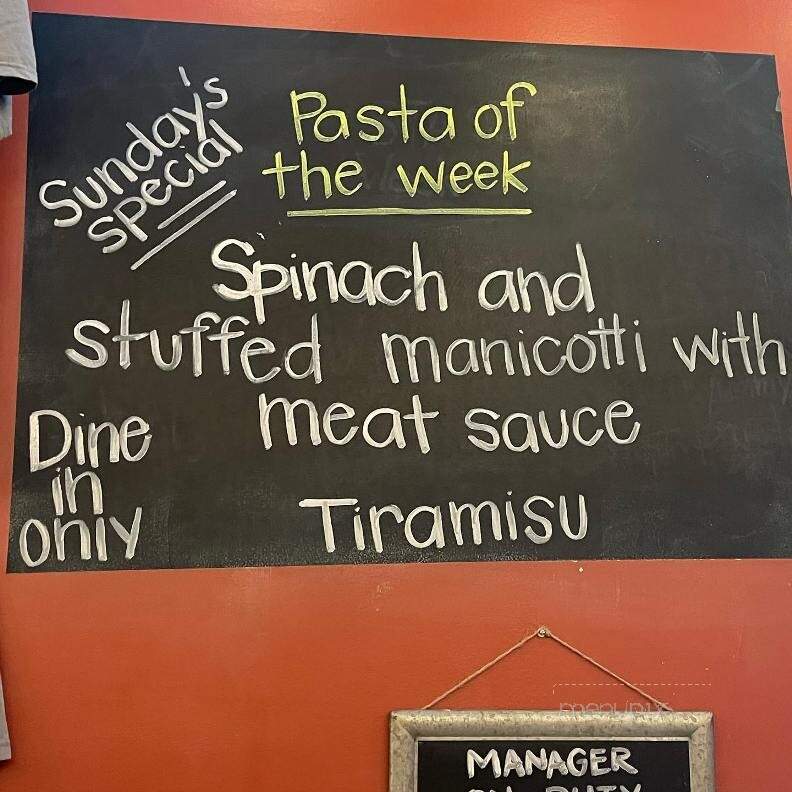 Sunday's
special
Pasta of
the week
Spinach and
stuffed manicotti with
meat sauce
Dine
in
only
Tiramisu
menupix
MANAGER
ON DUTY